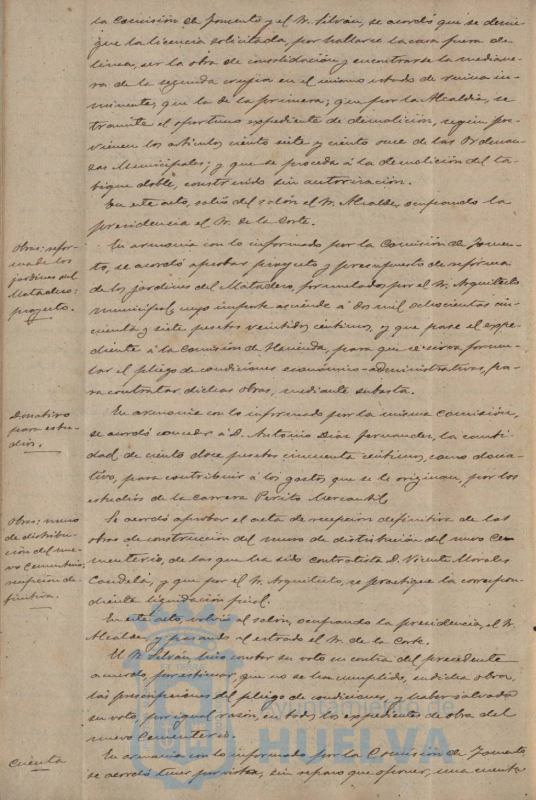 la Comisión de Fomento y el Sr. Silván, se acordó que se denie-
gue la licencia solicitada, por hallarse la casa fuera de
línea, ser la obra de consolidación y encontrarse la mediane-
ra de la segunda crugia en el mismo estado de ruina in-
minente, que la de la primera; que por la Alcaldía, se
tramite el oportuno expediente de demolición, según pre-
vienen los artículos ciento siete y ciento once de las Ordenan-
zas Municipales; y que se proceda á la demolición del ta-
bique doble, construido sin autorización.
En este acto, salió del salón el Sr. Alcalde, ocupando la
presidencia el Sr. de la Corte.
Obras: refor-
ma de los
jardines del
Matadero:
proyecto.
En armonía con lo informado por la Comisión de Fomen-
to, se acordó aprobar proyecto y presupuesto de reforma
de los jardines del Matadero, formulados por el Sr. Arquitecto
municipal, cuyo importe asciende á dos mil ochocientas cin-
cuenta y siete pesetas veintidos céntimos, y que pase el expe-
diente á la Comisión de Hacienda, para que se sirva formu-
lar el pliego de condiciones económico-administrativas, pa-
ra contratar dichas obras, mediante subasta.
Donativo
para estu-
dios.
En armonía con lo informado por la misma Comisión,
se acordó conceder á D. Antonio Diaz Fernandez, la canti-
dad de ciento doce pesetas cincuenta céntimos, como dona-
tivo, para contribuir á los gastos que se le originan, por los
estudios de la carrera Perito Mercantil.
Obras: muro
de distribu-
ción del nue-
vo Cementerio:
recepción de-
finitiva.
Se acordó aprobar el acta de recepción definitiva de las
obras de construcción del muro de distribución del nuevo Ce-
menterio, de las que ha sido contratista D. Vicente Morales
Candela, y que por el Sr. Arquitecto, se practique la correspon-
diente liquidación final.
En este acto, volvió al salón, ocupando la presidencia, el Sr.
Alcalde, y pasando al estrado el Sr. de la Corte.
El Sr. Silván hizo constar su voto en contra del precedente
acuerdo, por estimar, que no se han cumplido, en dicha obra,
las prescripciones del pliego de condiciones, y haber salvado
su voto, por igual razón, en todos los expedientes de obra del
nuevo Cementerio.
Cuenta
En armonía con lo informado por la Comisión de Fomento,
se acordó tener por vista, sin reparo que oponer, una cuenta
Ayuntamiento de
HUELVA